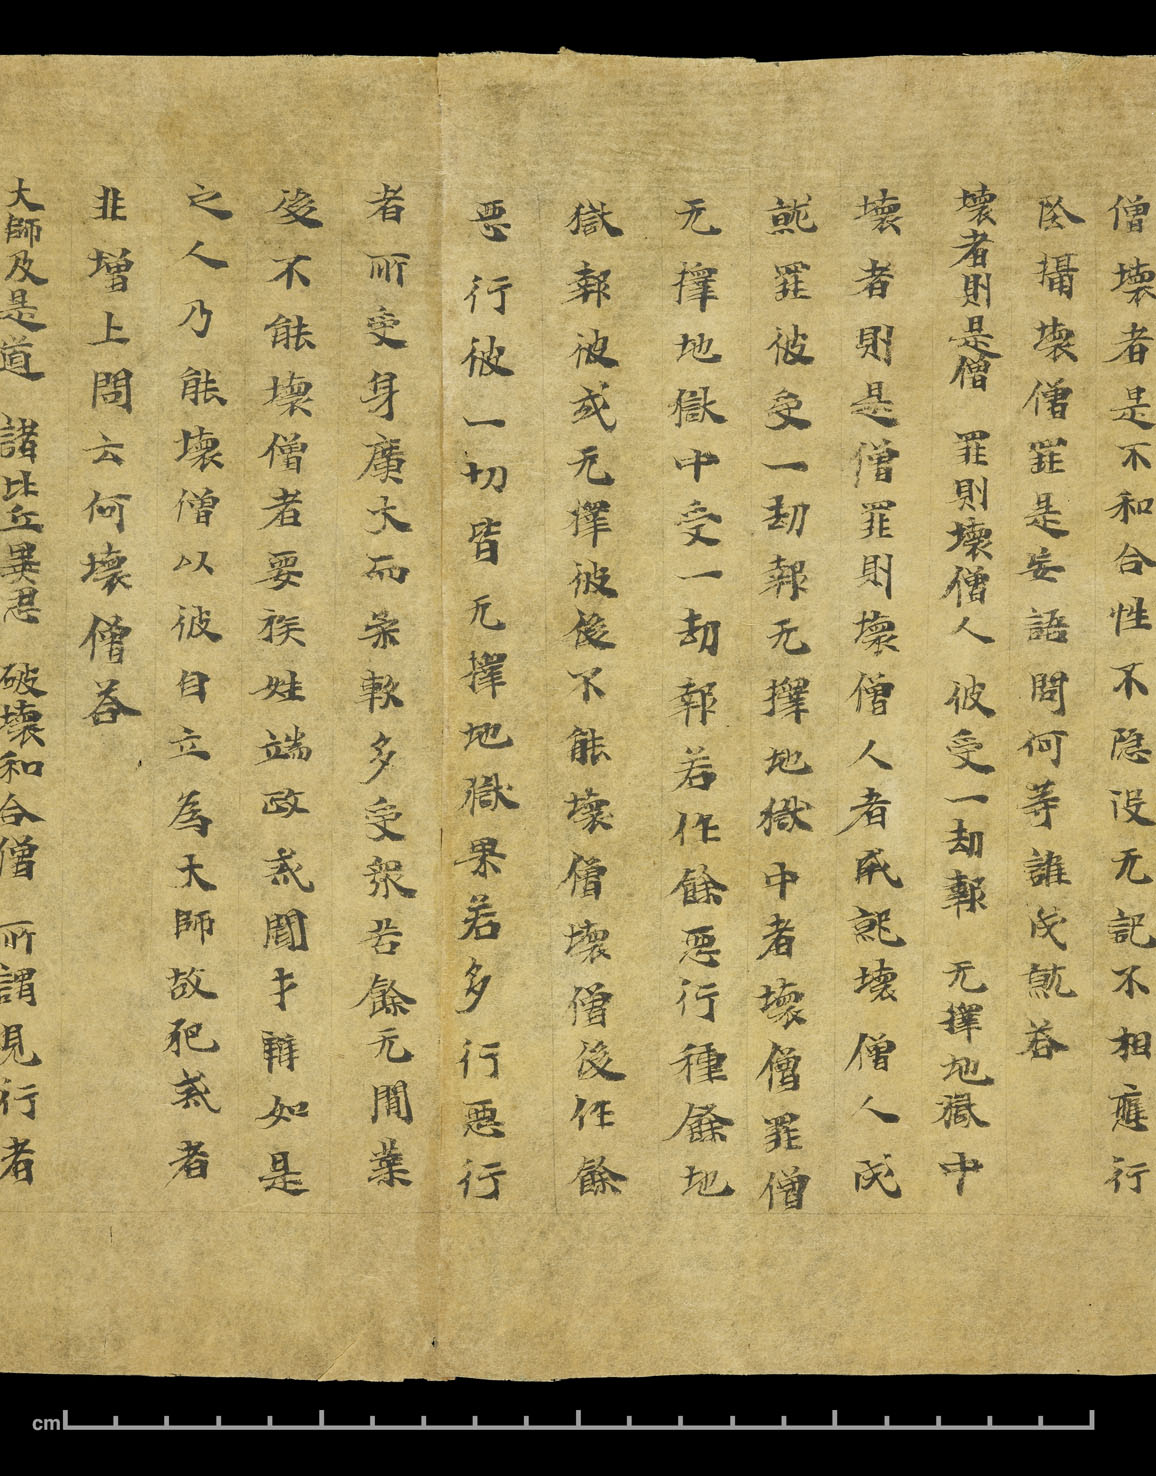 僧壞者是不和合性不隱沒无記不相應行
陰攝壞僧罪是妄語問何等誰成就荅
壞者則是僧 罪則壞僧人 彼受一劫報 无擇地獄中
壞者則是僧罪則壞僧人者成就壞僧人成
就罪彼受一劫報无擇地獄中者壞僧罪僧
无擇地獄中受一劫報若作餘惡行種餘地
獄報彼或无擇彼後不能壞僧壞僧後作餘
惡行彼一切皆无擇地獄果若多行惡行
者所受身廣大而柔軟多受衆苦餘无間業
後不能壞僧者要族姓端政戒聞才辯如是
之人乃能壞僧以彼自立為大師故犯戒者
非增上問云何壞僧荅
大師及是道 諸比丘異忍 破壞和合僧 所謂見行者
cm